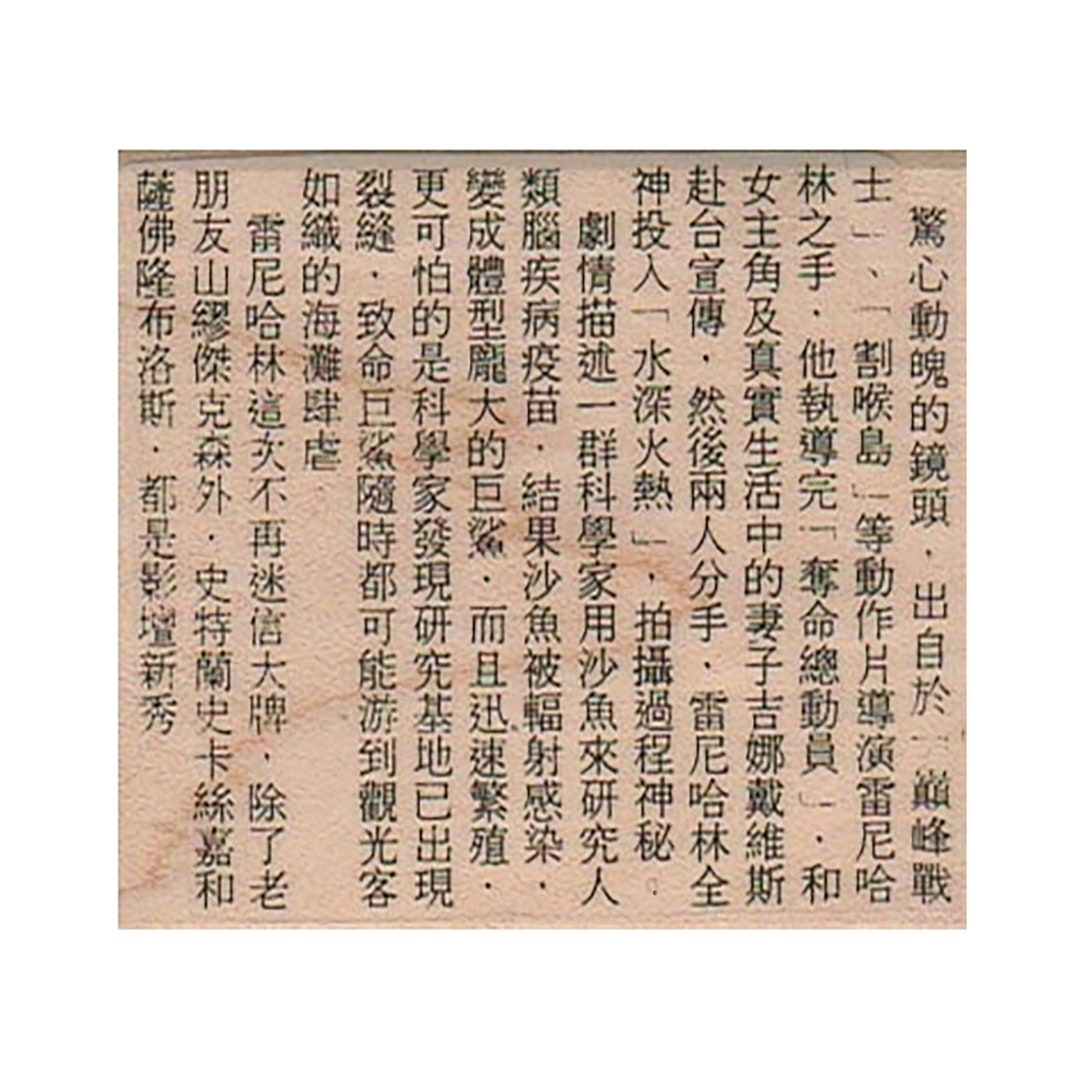 驚心動魄的鏡頭，出自於「巔峰戰
士」、「割喉島」等動作片導演雷尼哈
林之手，他執導完「奪命總動員」，和
女主角及真實生活中的妻子吉娜戴維斯
赴台宣傳，然後兩人分手，雷尼哈林全
神投入「水深火熱」，拍攝過程神秘。
劇情描述一群科學家用沙魚來研究人
類腦疾病疫苗，結果沙魚被輻射感染，
變成體型龐大的巨鯊，而且迅速繁殖，
更可怕的是科學家發現研究基地已出現
裂縫，致命巨鯊隨時都可能游到觀光客
如織的海灘肆虐
雷尼哈林這次不再迷信大牌，除了老
朋友山繆傑克森外，史特蘭史卡絲嘉和
薩佛隆布洛斯，都是影壇新秀